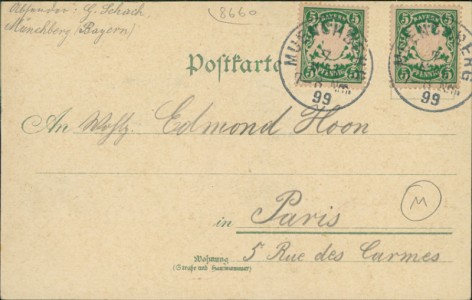 Absender: G. Schach.
Münchberg (Bayern)
(8660
BAYERN
5 5
PFENNIG
BAYERN
5 5
PFENNIG
MUENCHBERG
99
MUENCHBERG
99
Postkarte
An Wohlg. Edmond Hoon
M
in Paris
Wohnung
(Straße und Hausnummer)
5 Rue des Carmes